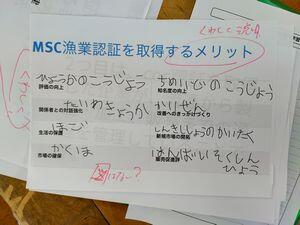 くわしく説明
MSC漁業認証を取得するメリット
ひょうかのこうじょう ちめいどのこうじょう
評価の向上 知名度の向上
たいわきょうか かいぜん
関係者との対話強化 改善へのきっかけづくり
ほご しんきしじょうのかいたく
生活の保護 新規市場の開拓
かくほ はんばいそくしん
市場の確保 販売促進評
ひょう